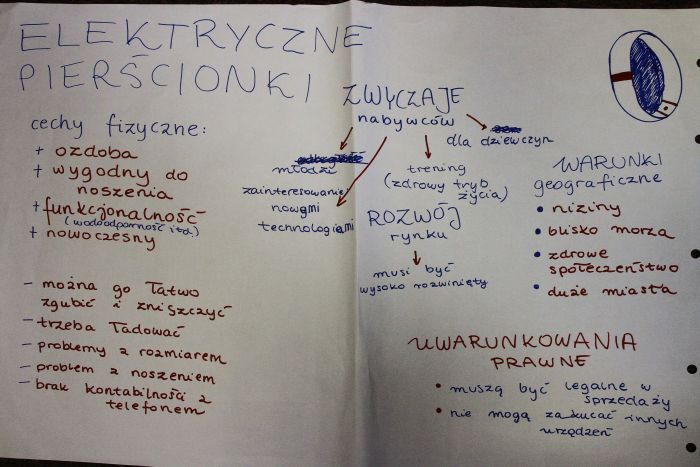 ELEKTRYCZNE
PIERŚCIONKI
cechy fizyczne:
+ ozdoba
+ wygodny do
noszenia
+ funkcjonalność
(wodoodporność itd.)
+ nowoczesny
- można go łatwo
zgubić i zniszczyć
- trzeba ładować
- problemy z rozmiarem
- problem z noszeniem
- brak kontabilności z
telefonem
ZWYCZAJE
nabywców
młodzi
zainteresowanie
nowymi
technologiami
trening
(zdrowy tryb
życia)
dla dziewczyn
ROZWÓJ
rynku
musi być
wysoko rozwinięty
WARUNKI
geograficzne
• niziny
• blisko morza
• zdrowe
społeczeństwo
• duże miasta
UWARUNKOWANIA
PRAWNE
• muszą być legalne w
sprzedaży
• nie mogą zakłucać innych
urządzeń